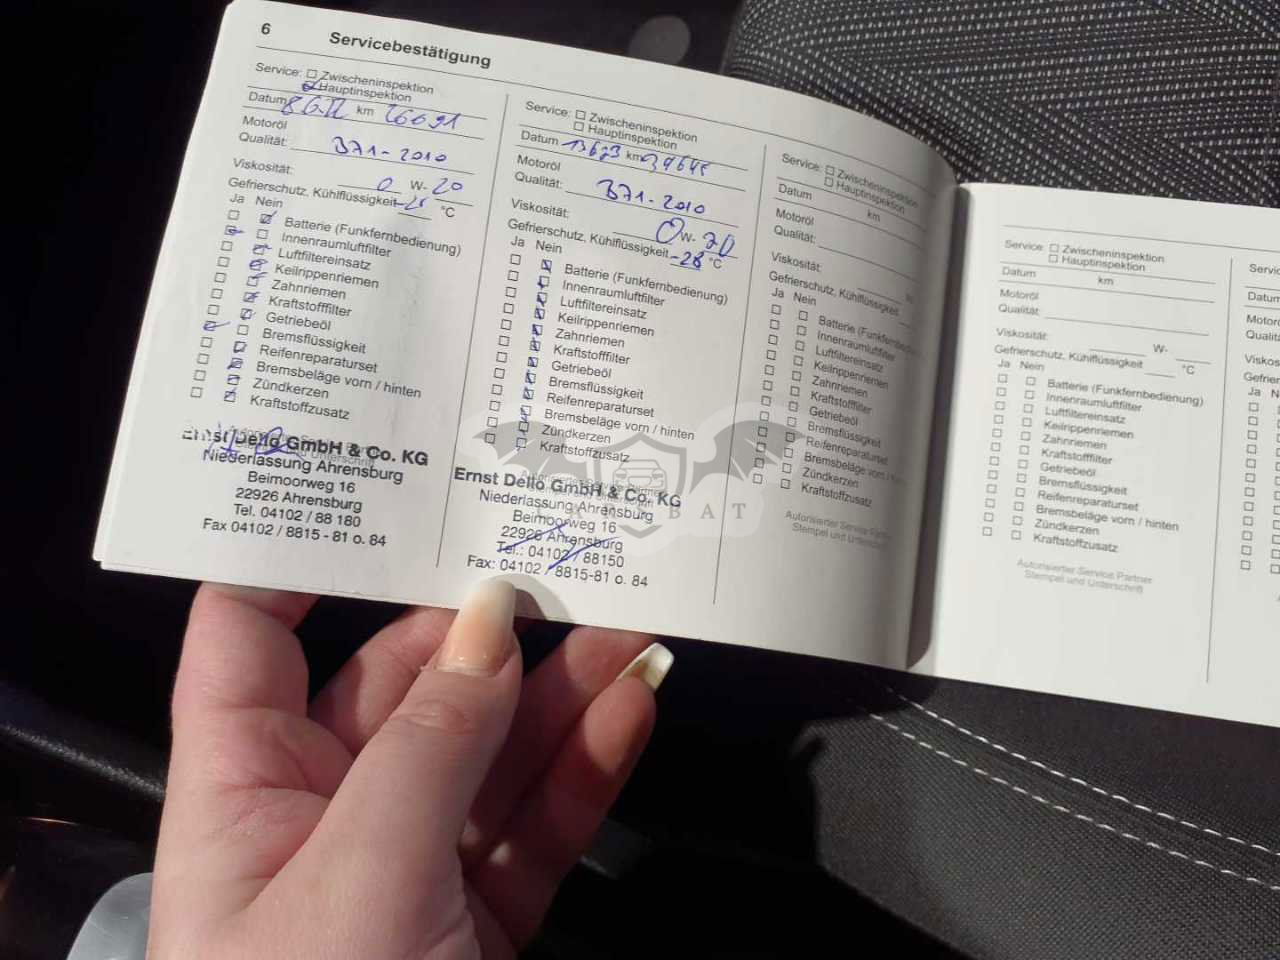 6 Servicebestätigung
Service: Zwischeninspektion
Hauptinspektion
Datum km 26691
Motoröl
Qualität: B71-2010
Viskosität: 0 W-20
Gefrierschutz, Kühlflüssigkeit °C
Ja Nein
Batterie (Funkfernbedienung)
Innenraumluftfilter
Luftfiltereinsatz
Keilrippenriemen
Zahnriemen
Kraftstofffilter
Getriebeöl
Bremsflüssigkeit
Reifenreparaturset
Bremsbeläge vorn / hinten
Zündkerzen
Kraftstoffzusatz
Ernst Dello GmbH & Co. KG
Niederlassung Ahrensburg
Beimoorweg 16
22926 Ahrensburg
Tel. 04102 / 88 180
Fax 04102 / 8815 - 81 o. 84
Service: Zwischeninspektion
Hauptinspektion
Datum km 39645
Motoröl
Qualität: B71-2010
Viskosität: 0 W-20
Gefrierschutz, Kühlflüssigkeit -28 °C
Ja Nein
Batterie (Funkfernbedienung)
Innenraumluftfilter
Luftfiltereinsatz
Keilrippenriemen
Zahnriemen
Kraftstofffilter
Getriebeöl
Bremsflüssigkeit
Reifenreparaturset
Bremsbeläge vorn / hinten
Zündkerzen
Kraftstoffzusatz
Ernst Dello GmbH & Co. KG
Niederlassung Ahrensburg
Beimoorweg 16
22926 Ahrensburg
Tel.: 04102 / 88150
Fax: 04102 / 8815-81 o. 84
Service: Zwischeninspektion
Hauptinspektion
Datum km
Motoröl
Qualität:
Viskosität:
Gefrierschutz, Kühlflüssigkeit
Ja Nein
Batterie
Innenraumluftfilter
Luftfiltereinsatz
Keilrippenriemen
Zahnriemen
Kraftstofffilter
Getriebeöl
Bremsflüssigkeit
Reifenreparaturset
Bremsbeläge vorn
Zündkerzen
Kraftstoffzusatz
Autorisierter Service
Stempel und
Service: Zwischeninspektion
Hauptinspektion
Datum km
Motoröl
Qualität:
Viskosität: W-
Gefrierschutz, Kühlflüssigkeit °C
Ja Nein
Batterie (Funkfernbedienung)
Innenraumluftfilter
Luftfiltereinsatz
Keilrippenriemen
Zahnriemen
Kraftstofffilter
Getriebeöl
Bremsflüssigkeit
Reifenreparaturset
Bremsbeläge vorn / hinten
Zündkerzen
Kraftstoffzusatz
Autorisierter Service Partner
Stempel und Unterschrift